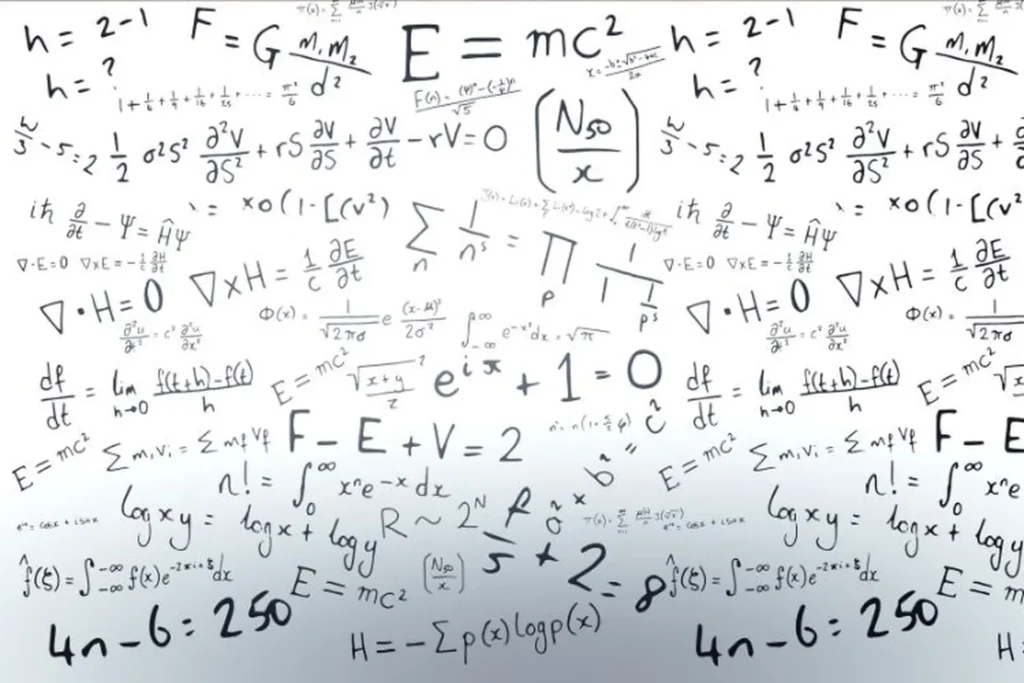 h = 2-1
F = G m₁m₂/d²
E = mc²
h = 2-1
F = G m₁m₂/d²
h = ?
1+1/4+1/9+1/16+1/25+... = π²/6
h = ?
1+1/4+1/9+1/16+1/25+... = π²/6
h/3 -5=2
1/2 σ²S² ∂²V/∂S² + rS ∂V/∂S + ∂V/∂t - rV=0
(N50/x)
h/3 -5=2
1/2 σ²S² ∂²V/∂S² + rS ∂V/∂S +
iħ ∂/∂t - Ψ = ĤΨ
Σn 1/nˢ = ∏p 1/1 1/pˢ
iħ ∂/∂t - Ψ = ĤΨ
∇·E=0 ∇xE=-1/c ∂H/∂t
∇xH = 1/c ∂E/∂t
∇·E=0 ∇xE=-1/c ∂H/∂t
∇xH = 1/c ∂E/∂t
∇·H=0
Φ(x) = 1/√2πσ e (x-μ)²/2σ²
∫-∞^∞ e^-x² dx = √π
∇·H=0
Φ(x) = 1/√2πσ
∂²u/∂t² = c² ∂²u/∂x²
∂²u/∂t² = c² ∂²u/∂x²
df/dt = lim h→0 f(t+h)-f(t)/h
E=mc²
√x+y/z ?
e^iπ + 1 = 0
df/dt = lim h→0 f(t+h)-f(t)/h
E=mc²
E=mc²
Σmᵢvᵢ = Σ mfVf
F - E + V = 2
E=mc²
Σmᵢvᵢ = Σ mfVf
F - E
n! = ∫₀^∞ xⁿe^-x dx
n! = ∫₀^∞ xⁿe
logxy = logx + logy
R ~ 2^N
logxy = logx + logy
f̂(ξ) = ∫-∞^-∞ f(x)e^-2πixξ dx
E = mc²
(N50/x)
R/5 + 2 = 8
f̂(ξ) = ∫-∞^-∞ f(x)e^-2πixξ dx
E = m
4n-6 = 250
H = -Σp(x)logp(x)
4n-6 = 250
H =